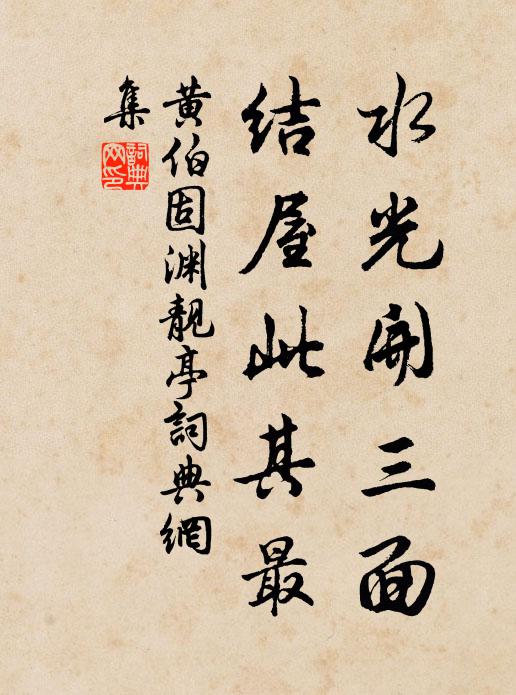 水光開三面
結屋此其最
黄伯固渊靚亭詞典網
集
詞典网印